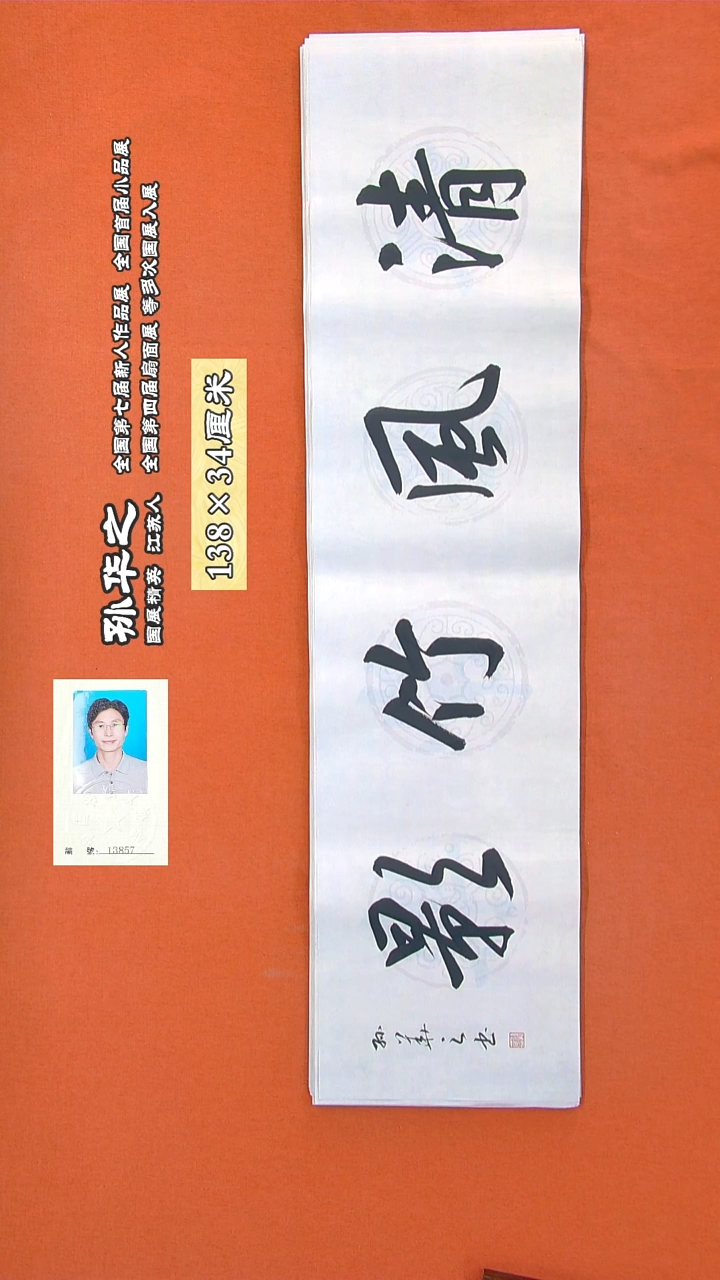 孙华之
国展精英 江苏人
全国第七届新人作品展 全国首届小品展
全国第四届扇面展 等多次国展入展
138×34厘米
编 号: 13857
清风竹影
孙华之书